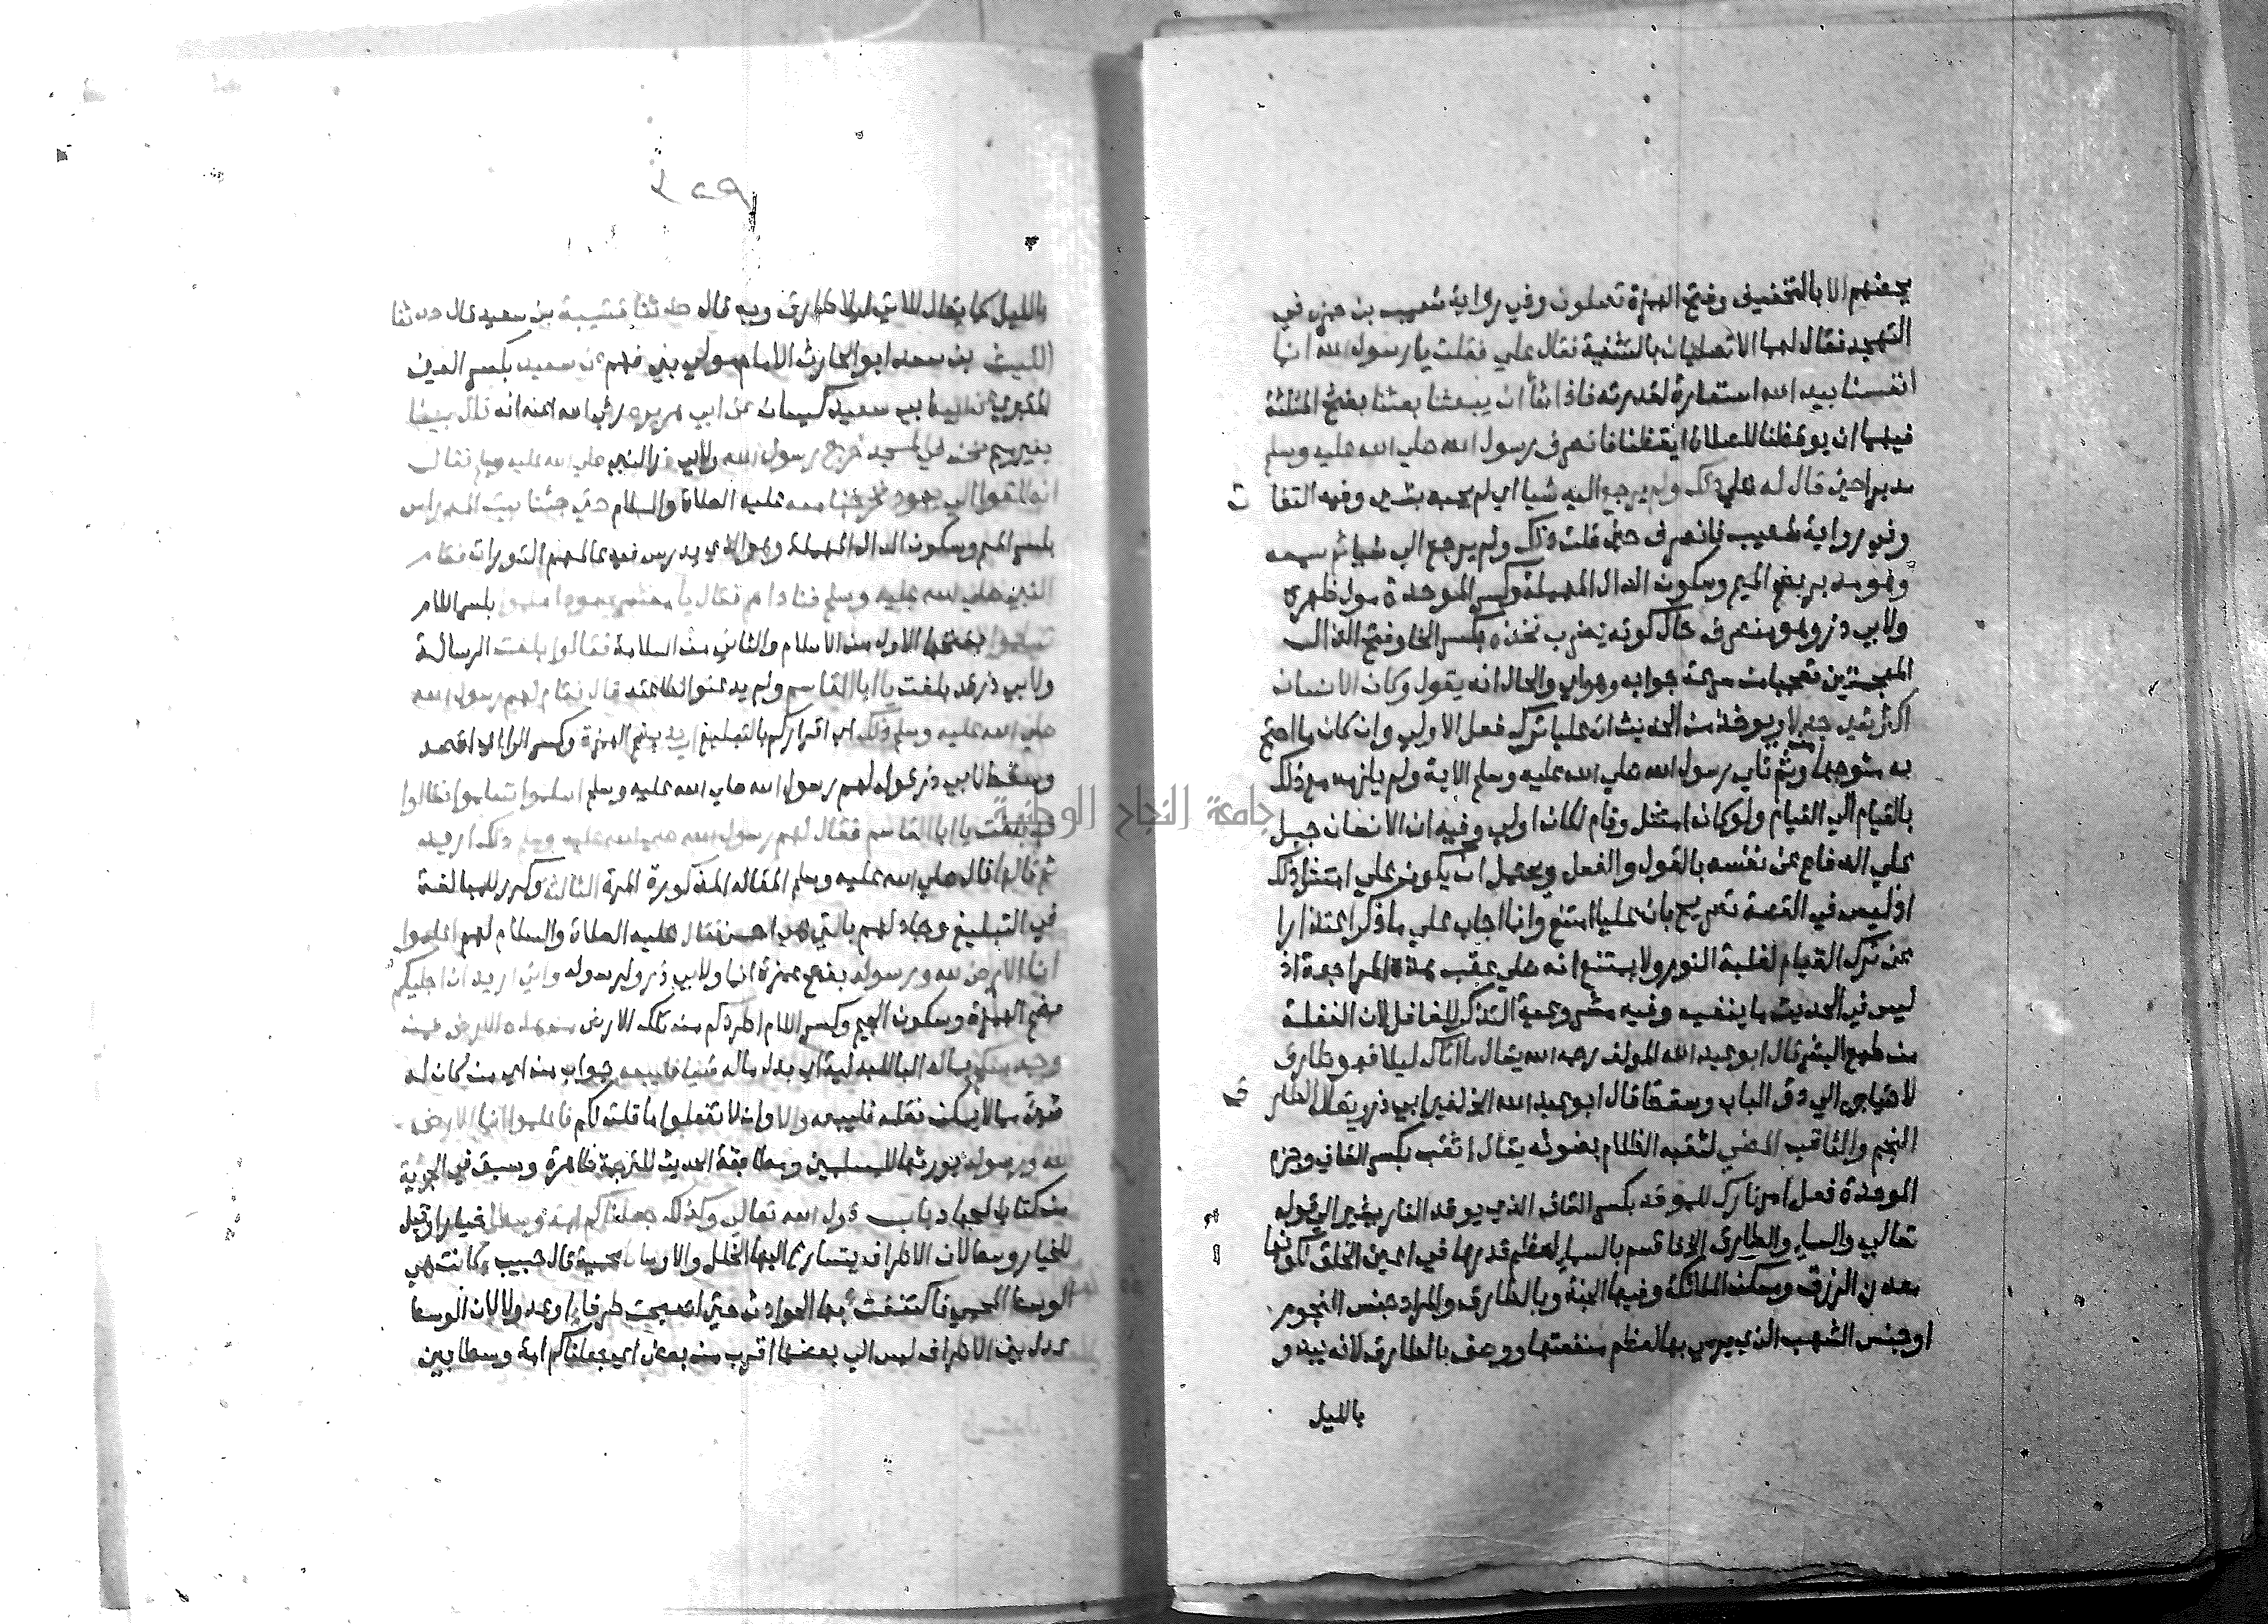 بعضهم الا بالتخفيف وفتح الهمزة تصلون وفي رواية شعيب بن حمزة في
التهجد فقال لهما الا تصليان بالتثنية فقال علي فقلت يا رسول الله انما
انفسنا بيد الله استعارة لقدرته فاذا شا ان يبعثنا بعثنا بفتح المثلثة
فيهما ان يوقظنا للصلاة ايقظنا فانصرف رسول الله صلي الله عليه وسلم
مدبرا حين قال له علي ذلك ولم يرجع اليه شيا اي لم يجبه بشي وفيه التفات
وفي رواية شعيب فانصرف حين قلت ذلك ولم يرجع الي شيا ثم سمعه
وهو مدبر بضم الميم وسكون الدال المهملة وكسر الموحدة مول ظهره
ولابي ذر وهو منصرف حال كونه يضرب فخذه بكسر الخا وفتح الذال
المعجمتين تعجبا من سرعة جوابه وهو اي والحال انه يقول وكان الانسان
اكثر شي جدلا ويوخذ من الحديث ان عليا ترك فعل الاولي وان كان ما احتج
به متوجها ومن ثم تلي رسول الله صلي الله عليه وسلم الاية ولم يلزمه مع ذلك
بالقيام الي القيام ولو كان امتثل وقام لكان اولي وفيه ان الانسان جبل
علي الدفاع عن نفسه بالقول والفعل ويحتمل ان يكون علي امتثل ذلك
اذ ليس في القصة تصريح بان عليا امتنع وانما اجاب علي ما ذكر اعتذارا
عن ترك القيام لغلبة النوم ولا يمتنع انه صلي عقب هذه المراجعة اذ
ليس في الحديث ما ينفيه وفيه مشروعية التذكير للغافل لان الغفلة
من طبع البشر قال ابو عبد الله المولف رحمه الله يقال ما اتاك ليلا فهو طارق
لاحتياجه الي دق الباب وسقط قال ابو عبد الله الخ لغير ابي ذر ويقال الطارق
النجم والثاقب المضي لثقبه الظلام بضوئه يقال اثقب بكسر القاف وجزم
الموحدة فعل امر نارك للموقد بكسر القاف الذي يوقد النار يشير الي قوله
تعالي والسماء والطارق الخ اقسم بالسماء لعظم قدرها في اعين الخلق لكونها
معدن الرزق ومسكن الملائكة وفيها الجنة وبالطارق والمراد جنس النجوم
او جنس الشهب الذي يرمي بها لعظم منفعتها ووصف بالطارق لانه يبدو
بالليل
بالليل كما يقال للاتي ليلا طارق وبه قال حدثنا قتيبة بن سعيد قال حدثنا
الليث بن سعد ابو الحارث الامام مولي بني فهم عن سعيد بكسر العين
المقبري عن ابيه ابي سعيد كيسان عن ابي هريرة رضي الله عنه انه قال بينا
بغير ميم نحن في المسجد خرج رسول الله ولابي ذر النبي صلي الله عليه وسلم فقال
انطلقوا الي يهود فخرجنا معه عليه الصلاة والسلام حتي جئنا بيت المدراس
بكسر الميم وسكون الدال المهملة وهو الذي يدرس فيه عالمهم التوراة فقام
النبي صلي الله عليه وسلم فناداهم فقال يا معشر يهود اسلموا بكسر اللام
تسلموا بفتحها الاول من الاسلام والثاني من السلامة فقالوا بلغت الرسالة
ولابي ذر قد بلغت يا ابا القاسم ولم يذعنوا لطاعته قال فقال لهم رسول الله
صلي الله عليه وسلم ذلك اي اقراركم بالتبليغ اريد بضم الهمزة وكسر الرا اي اقصد
وسقط لابي ذر قوله لهم رسول الله صلي الله عليه وسلم اسلموا تسلموا فقالوا
قد بلغت يا ابا القاسم فقال لهم رسول الله صلي الله عليه وسلم ذلك اريد
ثم قالها قال صلي الله عليه وسلم المقالة المذكورة المرة الثالثة وكرر للمبالغة
في التبليغ وجادلهم بالتي هي احسن فقال عليه الصلاة والسلام لهم اعلموا
انما الارض لله ورسوله بفتح همزة انما ولابي ذر ولرسوله واني اريد ان اجليكم
بضم الهمزة وسكون الجيم وكسر اللام اطردكم من تلك الارض من هذه الارض فمن
وجد منكم بماله البا للبدلية اي بدل ماله شيا فليبعه جواب من اي من كان له
شي مما لا يمكن نقله فليبعه والا وان لا تفعلوا ما قلت لكم فاعلموا انما الارض
لله ورسوله يورثها للمسلمين ومطابقة الحديث للترجمة ظاهرة وسبق في الجزية
من كتاب الجهاد باب قول الله تعالي وكذلك جعلناكم امة وسطا خيارا وقيل
للخيار وسط لان الاطراف يتسارع اليها الخلل والاوساط محمية قال حبيب كانت هي
الوسط المحمي فاكتنفت بها الحوادث حتي اصبحت طرفا او عدولا لان الوسط
عدل بين الاطراف ليس الي بعضها اقرب من بعض اي جعلناكم امة وسطا بين
جامعة النجاح الوطنية